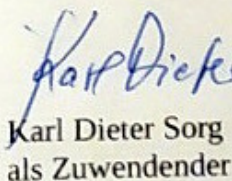 Karl Dieter
Karl Dieter Sorg
als Zuwendender